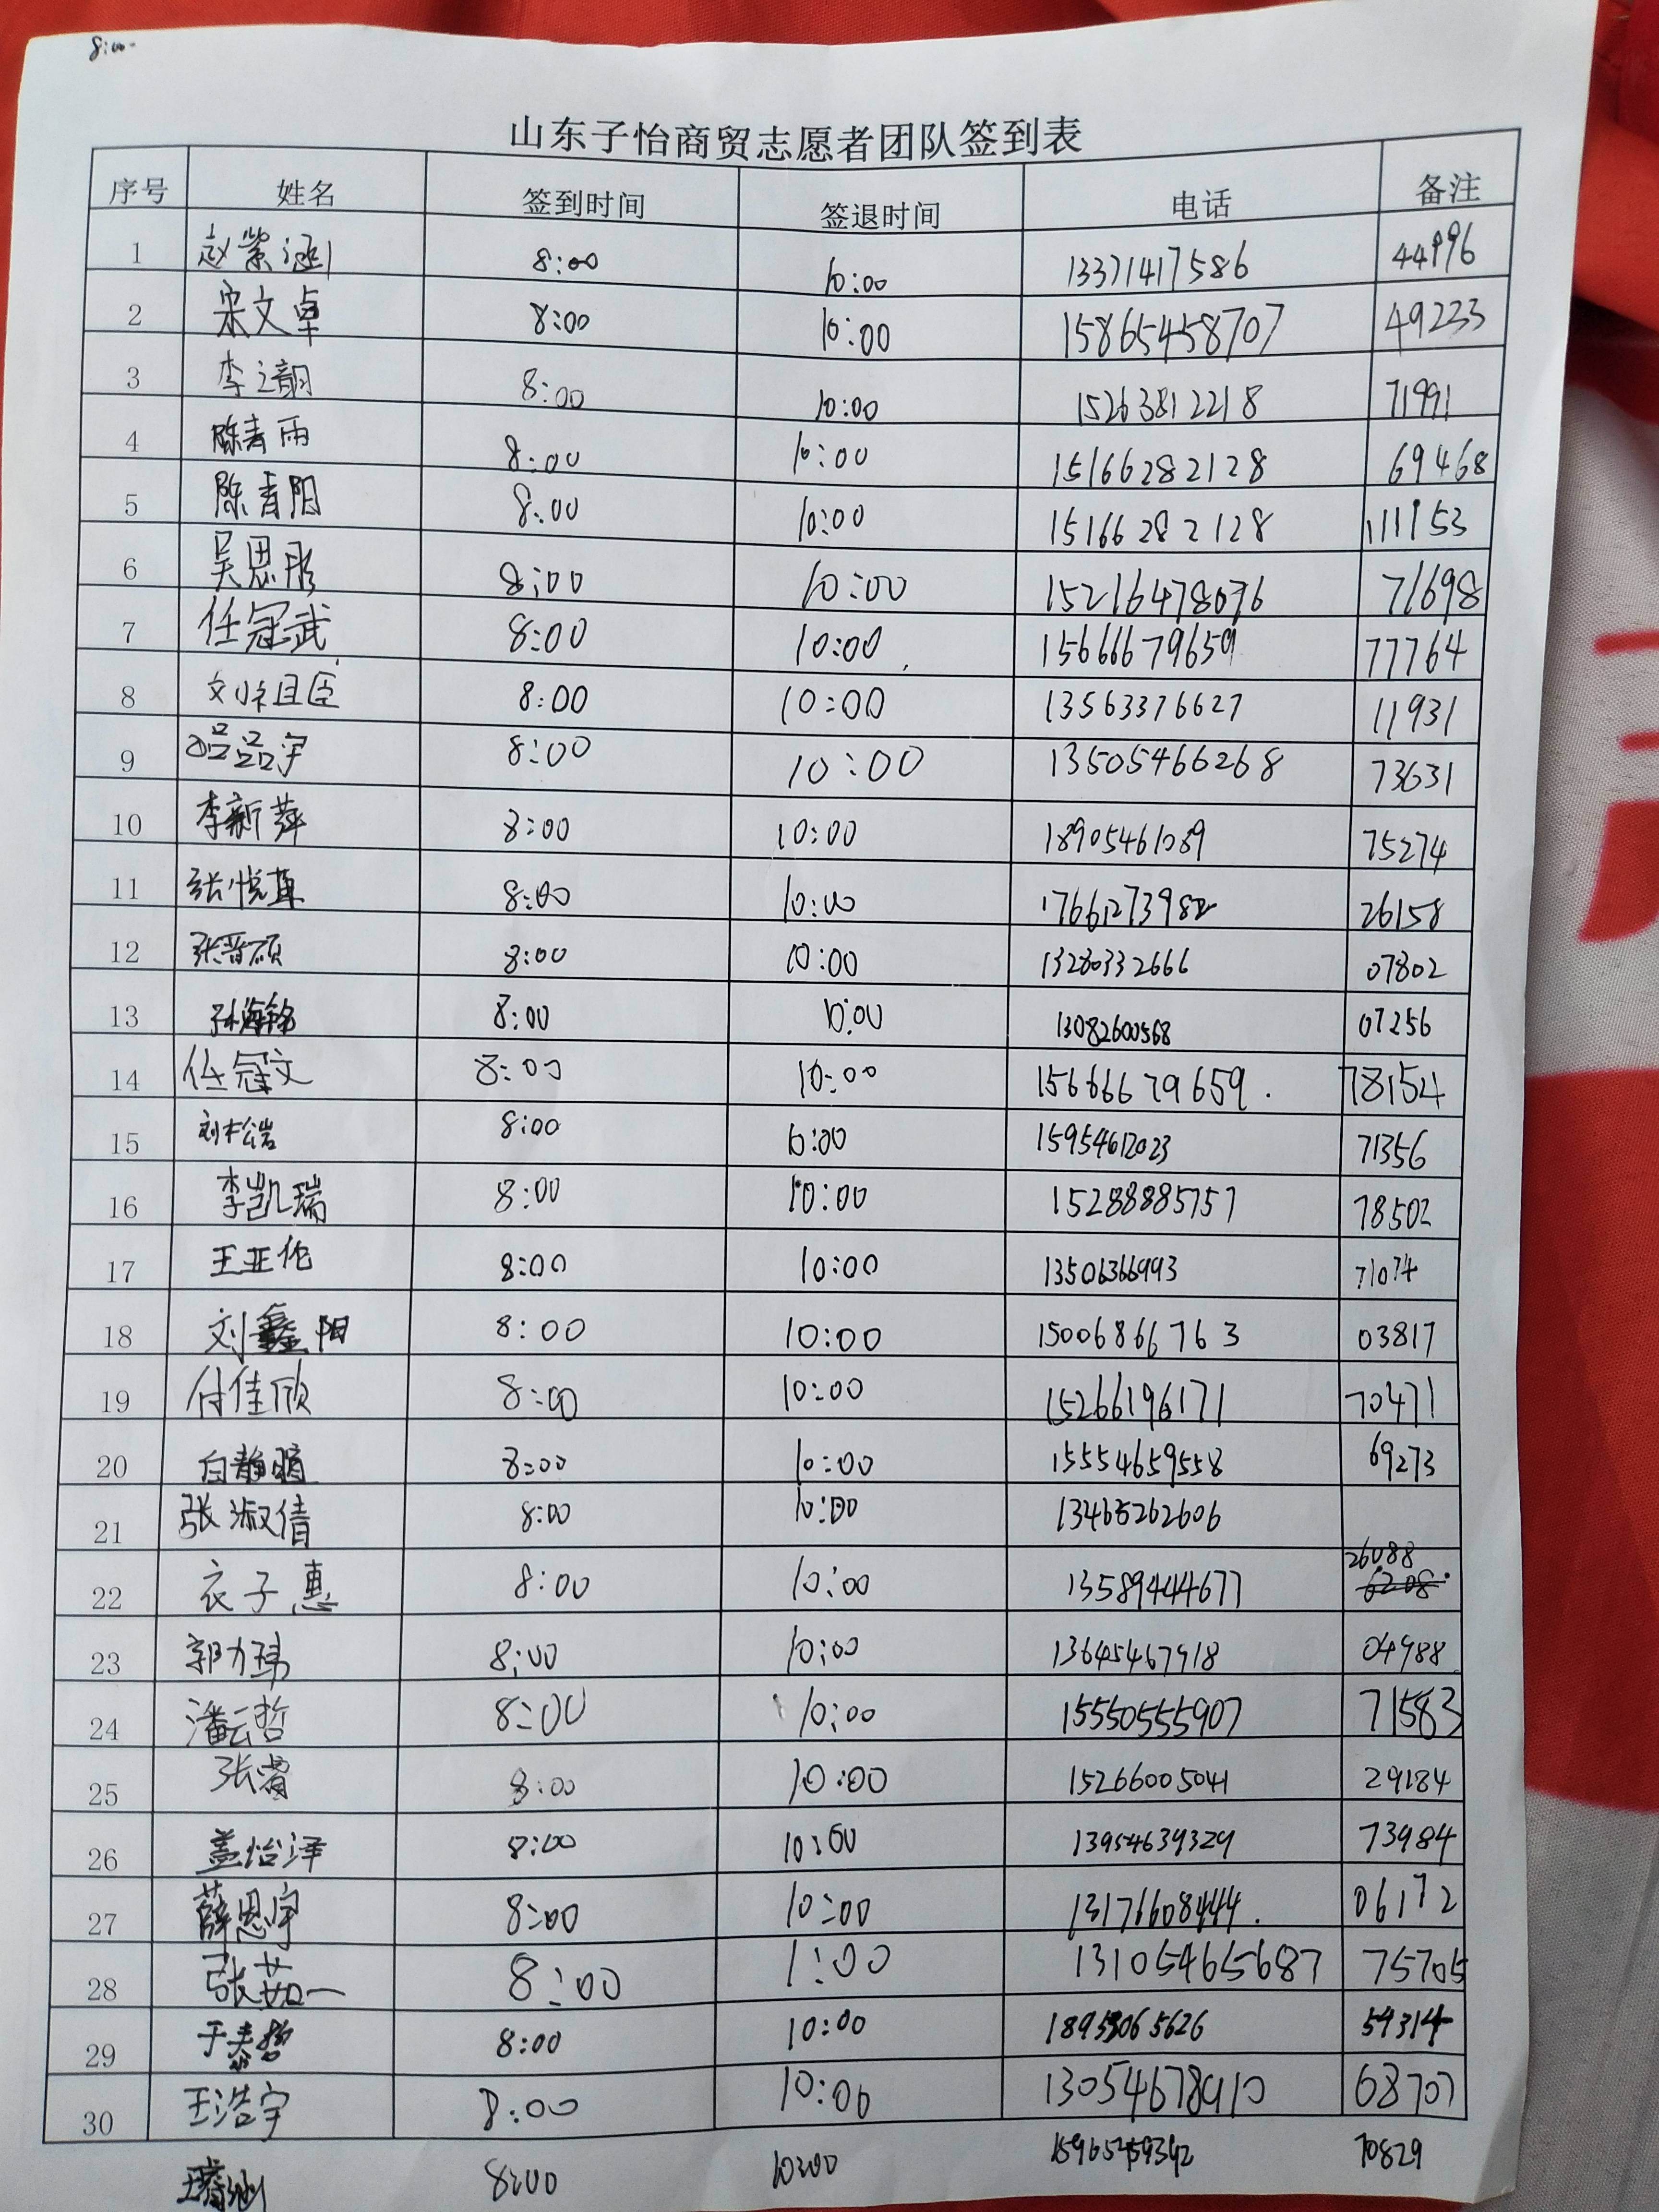 8:00-
山东子怡商贸志愿者团队签到表
序号 姓名 签到时间 签退时间 电话 备注
1 赵紫涵 8:00 10:00 13371417586 44996
2 宋文卓 8:00 10:00 15865458707 49233
3 李之韵 8:00 10:00 15263812218 71991
4 陈青雨 8:00 10:00 15166282128 69468
5 陈青阳 8:00 10:00 15166282128 111153
6 吴思彤 8:00 10:00 15216478076 71698
7 任冠武 8:00 10:00 15666679659 77764
8 8:00 10:00 13563376627 11931
9 8:00 10:00 13505466268 73631
10 李新萍 8:00 10:00 18905461089 75274
11 8:00 10:00 17661273982 26158
12 张晋硕 8:00 10:00 13280332666 07802
13 孙海铭 8:00 10:00 13082600568 07256
14 任冠文 8:00 10:00 15666679659. 78154
15 刘松岩 8:00 10:00 15954612023 71356
16 李凯瑞 8:00 10:00 15288885757 78502
17 王亚伦 8:00 10:00 13506366993 71074
18 刘鑫阳 8:00 10:00 15006866763 03817
19 付佳欣 8:00 10:00 15266196171 70471
20 白静暄 8:00 10:00 15554659558 69273
21 张淑倩 8:00 10:00 13465262606
22 衣子惠 8:00 10:00 13589444677 26088
23 郭力玮 8:00 10:00 13645467918 04988
24 潘云哲 8:00 10:00 15550555907 71583
25 张睿 8:00 10:00 15266005041 29184
26 盖怡泽 8:00 10:00 13954639329 73984
27 薛恩宇 8:00 10:00 13176608444. 06172
28 张茹一 8:00 1:00 13105465687 75705
29 于泰哲 8:00 10:00 59314
30 王浩宇 8:00 10:00 13054678910 68707
8:00 10:00 70829